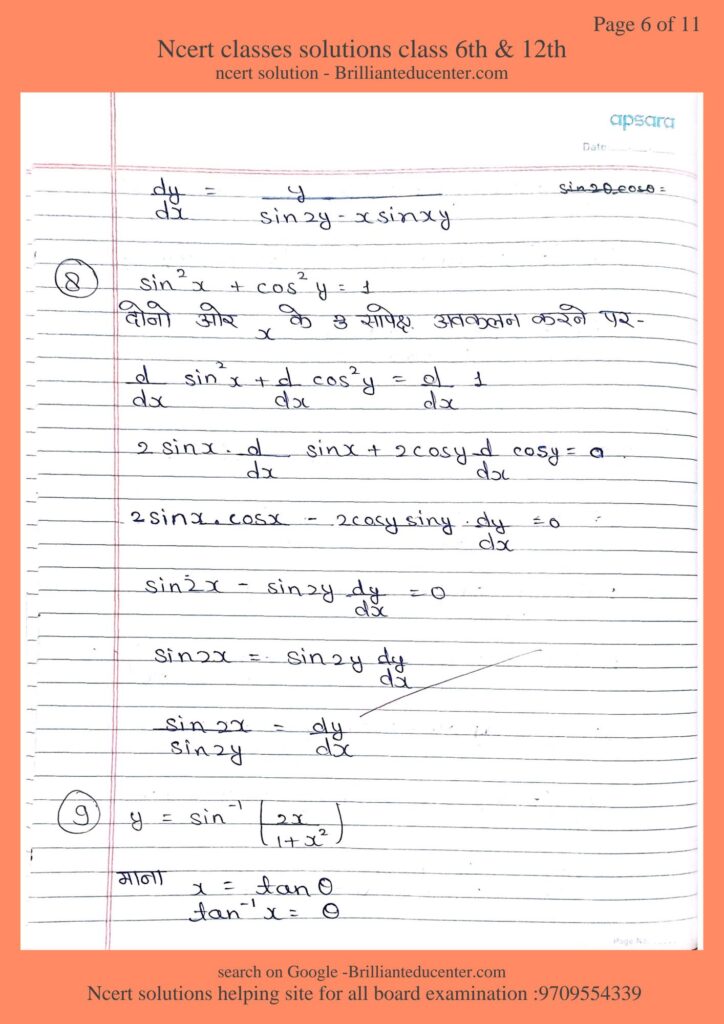 Page 6 of 11
Ncert classes solutions class 6th & 12th
ncert solution - Brillianteducenter.com
apsara
Date
dy/dx = y/(sin2y - x sinxy)
sin2θ.cosθ =
⑧ sin²x + cos²y = 1
दोनो ओर x के सापेक्ष अवकलन करने पर-
d/dx sin²x + d/dx cos²y = d/dx 1
2 sinx . d/dx sinx + 2cosy d/dx cosy = 0
2sinx.cosx - 2cosy siny . dy/dx = 0
sin2x - sin2y dy/dx = 0
sin2x = sin2y dy/dx
sin2x/sin2y = dy/dx
⑨ y = sin⁻¹ (2x/(1+x²))
माना x = tanθ
tan⁻¹x = θ
Page No.
search on Google -Brillianteducenter.com
Ncert solutions helping site for all board examination :9709554339